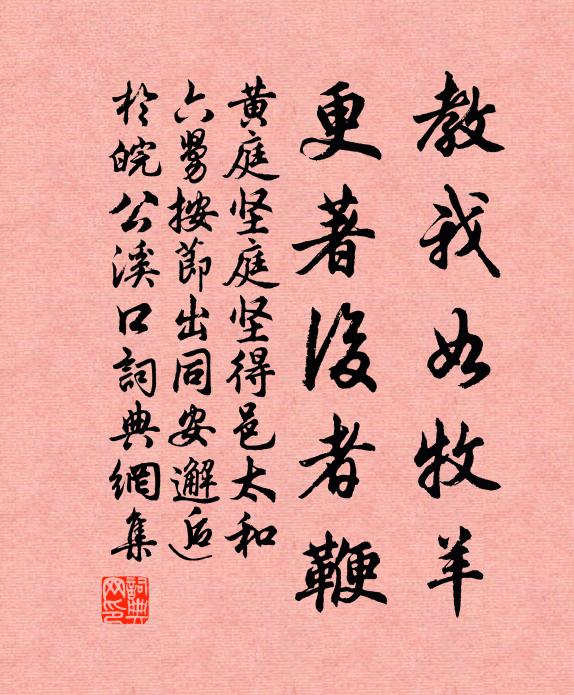 教我如牧羊
更著後者鞭
黄庭坚庭坚得邑太和
六舅按節出同安邂逅
於皖公溪口詞典網集
詞典网印